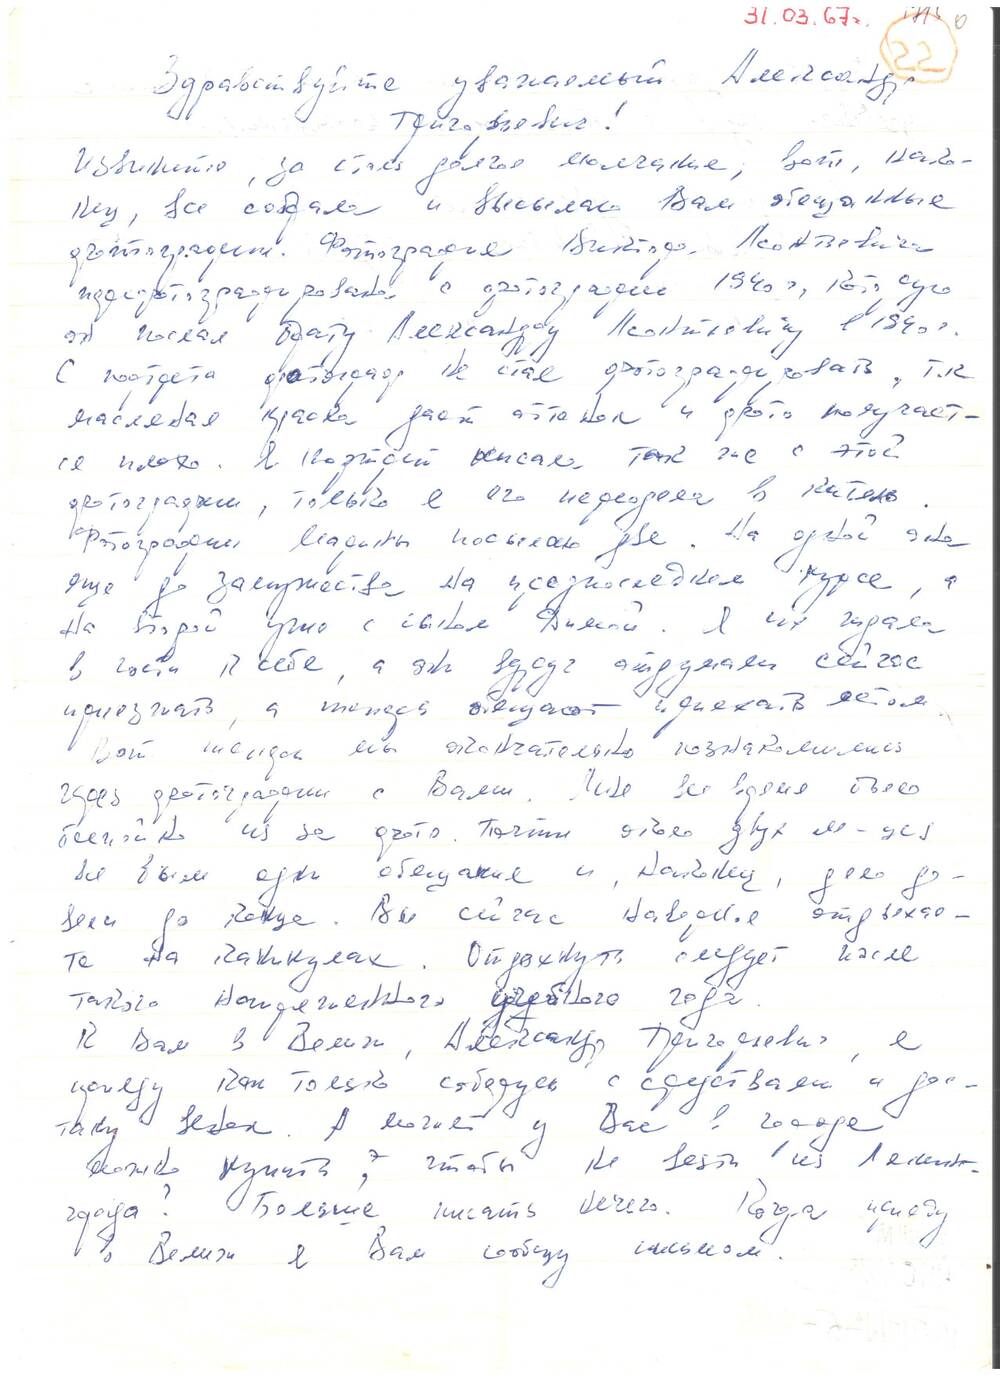 31.03.67г.
22
Здравствуйте уважаемый Александр
Григорьевич!
Извините, за столь долгое молчание, вот, нако-
нец, все собрала и высылаю Вам обещанные
фотографии. Фотография Виктора Леонтьевича
перефотографирована с фотографии 1940 г, которую
он послал брату Александру Леонтьевичу в 1940 г.
С портрета фотограф не стал фотографировать, т.к
масленая краска дает оттенок и фото получает-
ся плохо. Я портрет писала так же с этой
фотографии, только я его переодела в китель.
Фотографии Марины посылаю две. На одной она
еще до замужества на предпоследнем курсе, а
на второй уже с сыном Димой. Я их ждала
в гости к себе, а они вдруг отдумали сейчас
приезжать, а теперь обещают приехать летом.
Вот теперь мы окончательно познакомились
через фотографии с Вами. Мне все время было
из за фото. Почти около двух м-цев
все были одни обещания и, наконец, дело до-
вели до конца. Вы сейчас наверное отдыхае-
те на каникулах. Отдохнуть следует после
такого напряженного учебного года.
К Вам в Велиж, Александр Григорьевич, я
приеду как только соберусь с средствами и дос-
тану венок. А может у Вас в городе
можно купить, чтобы не везти из Ленин-
града? Больше писать нечего. Когда приеду
в Велиж я Вам сообщу письмом.